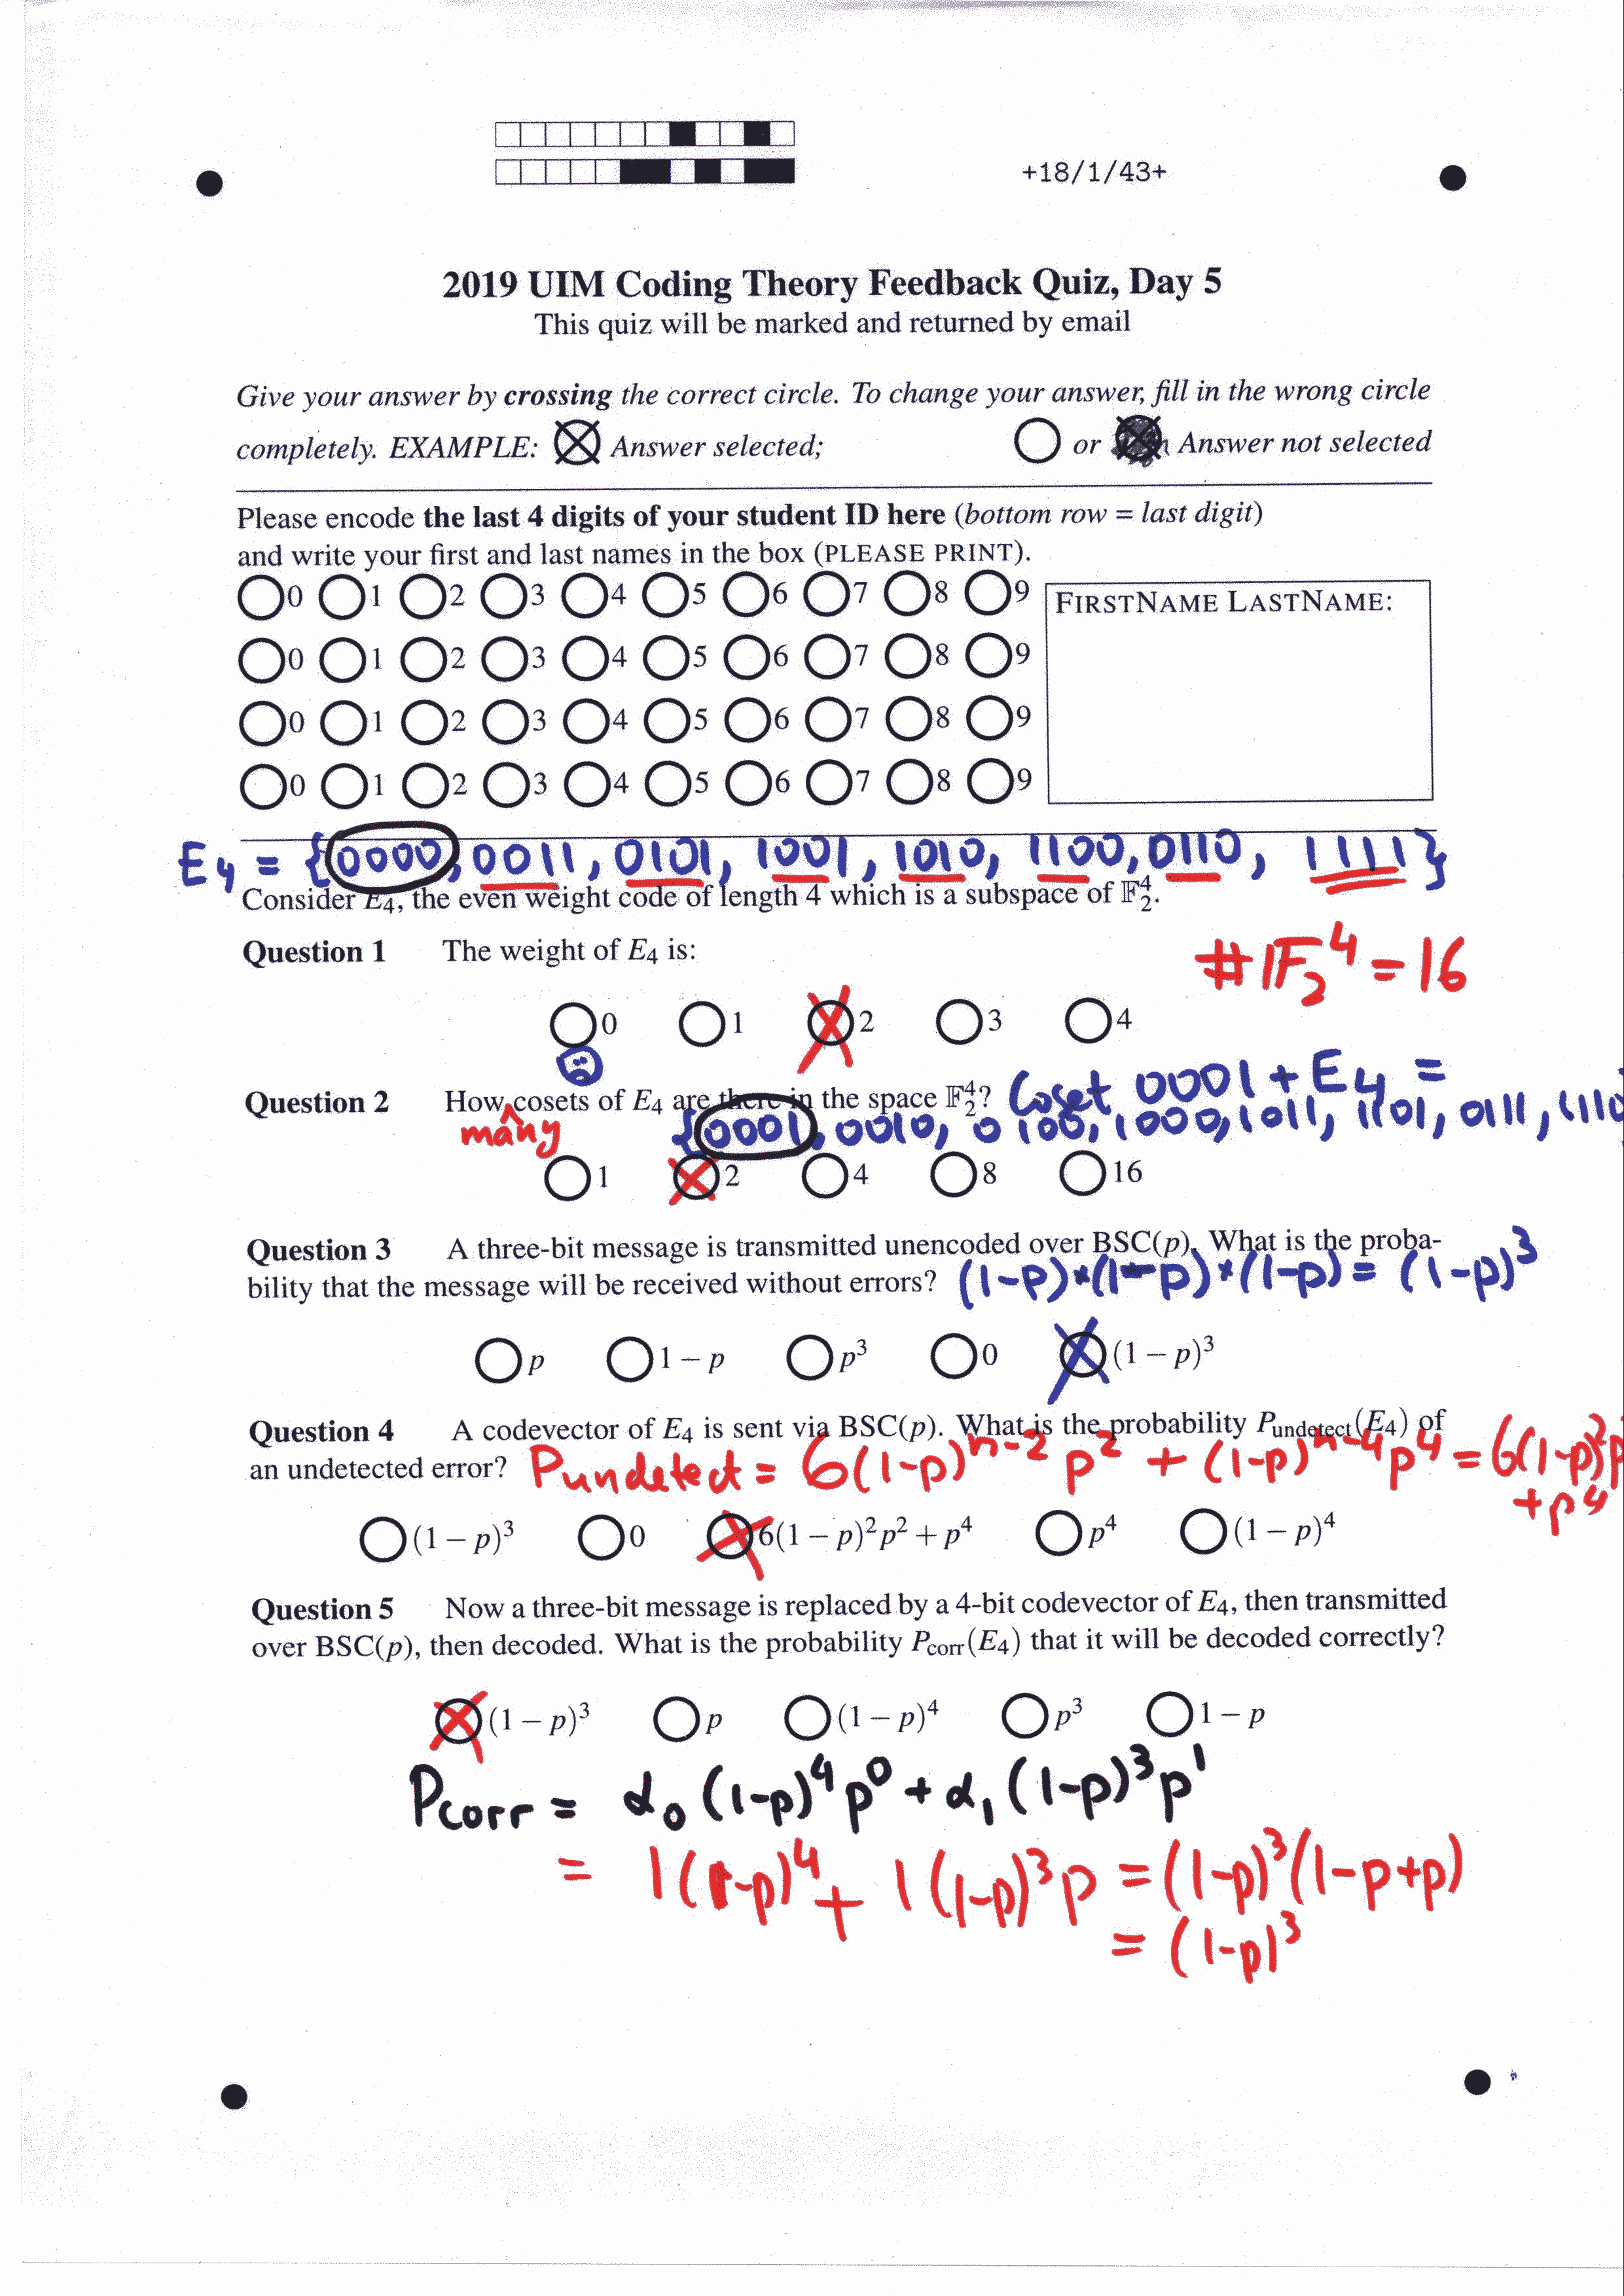 +18/1/43+
2019 UIM Coding Theory Feedback Quiz, Day 5
This quiz will be marked and returned by email
Give your answer by crossing the correct circle. To change your answer, fill in the wrong circle
completely. EXAMPLE: Answer selected; or Answer not selected
Please encode the last 4 digits of your student ID here (bottom row = last digit)
and write your first and last names in the box (PLEASE PRINT).
0 1 2 3 4 5 6 7 8 9
FIRSTNAME LASTNAME:
0 1 2 3 4 5 6 7 8 9
0 1 2 3 4 5 6 7 8 9
0 1 2 3 4 5 6 7 8 9
E₄ = {0000, 0011, 0101, 1001, 1010, 1100, 0110, 1111}
Consider E₄, the even weight code of length 4 which is a subspace of 𝔽₂⁴.
Question 1 The weight of E₄ is:
#𝔽₂⁴ = 16
0 1 2 3 4
Question 2 How cosets of E₄ are there in the space 𝔽₂⁴? Coset 0001 + E₄ =
many {0001, 0010, 0100, 1000, 1011, 1101, 0111, 1110
1 2 4 8 16
Question 3 A three-bit message is transmitted unencoded over BSC(p). What is the proba-
bility that the message will be received without errors? (1-p)*(1-p)*(1-p) = (1-p)³
p 1 − p p³ 0 (1 − p)³
Question 4 A codevector of E₄ is sent via BSC(p). What is the probability P_undetect(E₄) of
an undetected error? Pundetect = 6(1-p)ⁿ⁻²p² + (1-p)ⁿ⁻⁴p⁴ = 6(1-p)²p
+p⁴
(1 − p)³ 0 6(1 − p)²p² + p⁴ p⁴ (1 − p)⁴
Question 5 Now a three-bit message is replaced by a 4-bit codevector of E₄, then transmitted
over BSC(p), then decoded. What is the probability P_corr(E₄) that it will be decoded correctly?
(1 − p)³ p (1 − p)⁴ p³ 1 − p
Pcorr = α₀(1-p)⁴p⁰ + α₁(1-p)³p¹
= 1(1-p)⁴ + 1(1-p)³p = (1-p)³(1-p+p)
= (1-p)³